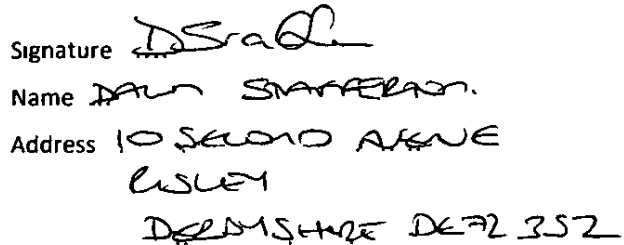 Signature
Name
Address 10 SECOND AVENUE
RISLEY
DERBYSHIRE DE72 3SZ